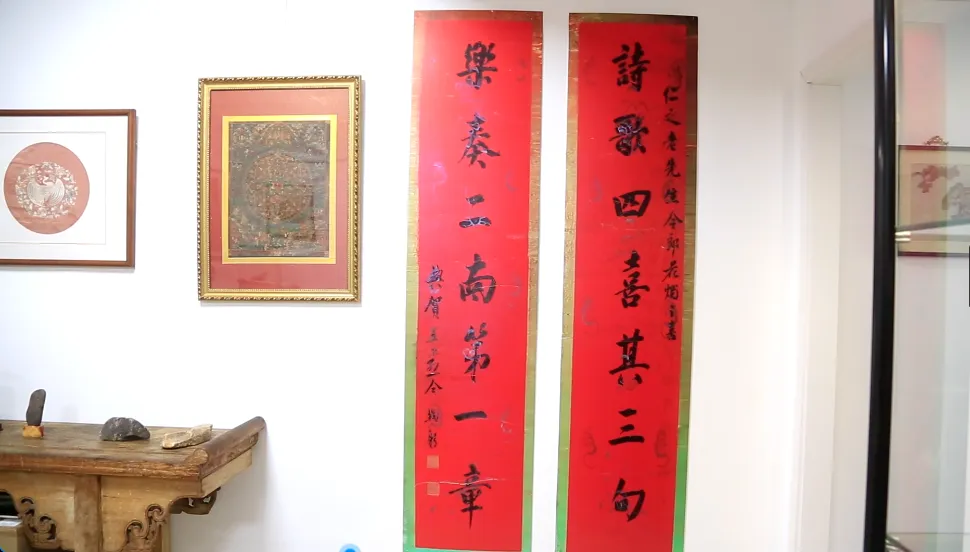 詩歌四喜其三句
仁之老先生令郎花燭之喜
樂奏二南第一章
敬賀